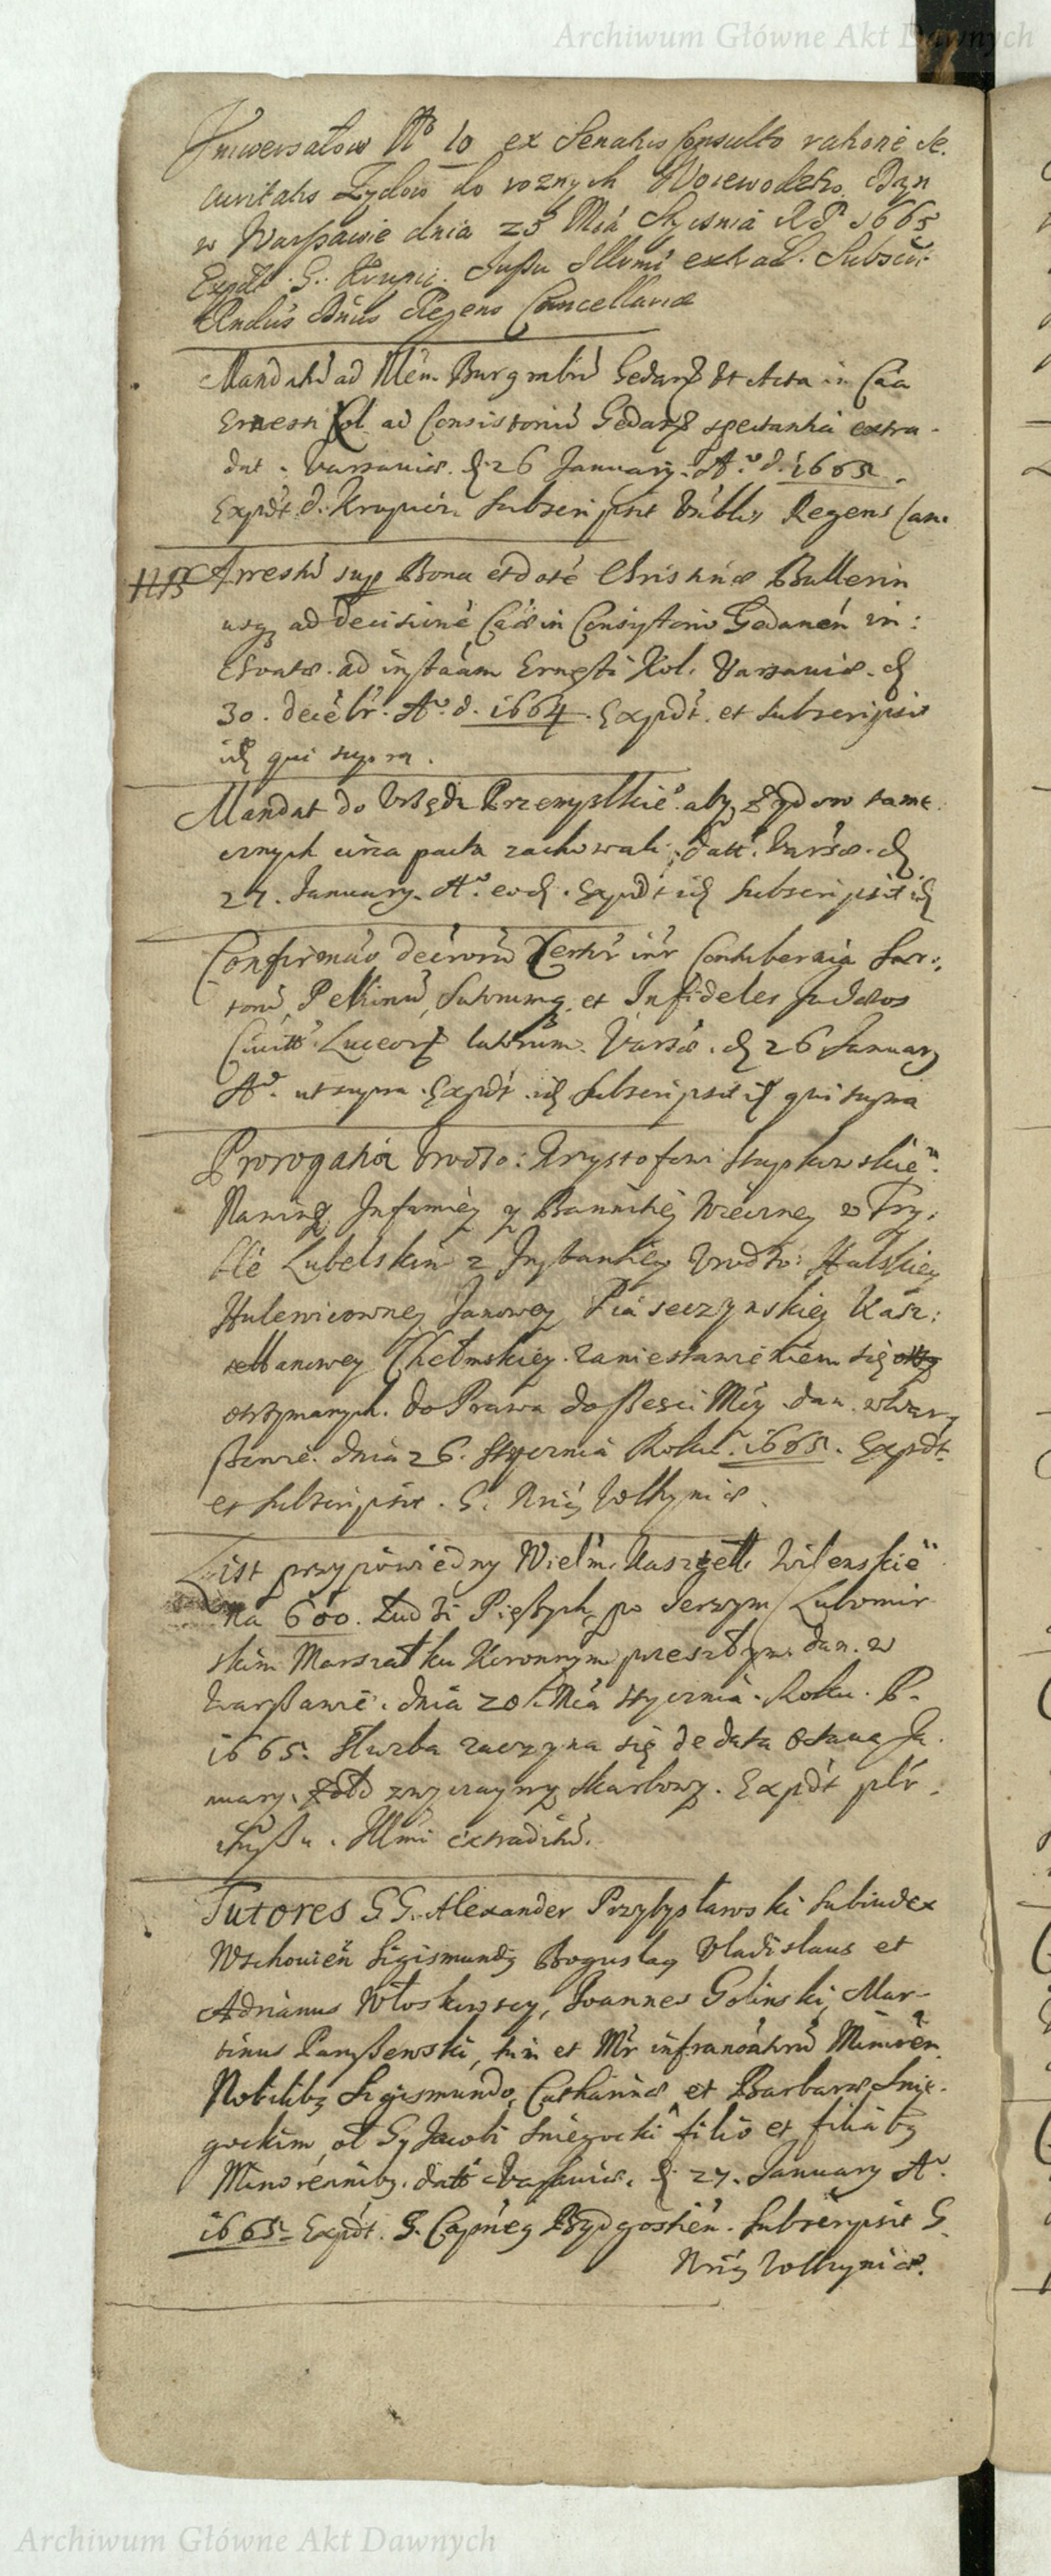 Archiwum Główne Akt Dawnych
Uniwersałow No 10 ex Senatus Consulto ratione Se.
curitatis Zydow do roznych Woiewodztw. Dan
w Warszawie dnia 23 Mca Stycznia RP 1665
Expdt. G. Krupic. Jussu Illmi extrad. Subscr:
Rndus Dnus Regens Cancellariæ
Mandatū ad Burgrabiū Gedan Acta in Caa
Ernesti Kol ad Consistoriū Gedan spectantia extra-
dat. Varsaviæ. d. 26 January. Ao. d. 1665.
Expdt. d. Krupic. Subscripsit Regens Can.
Arrestū sup Bona et dotē Christinæ Bullerin
usq ad decisionē Caæ in Consistorio Gedanen in:
ad instaām Ernesti Kol. Varsaviæ. d
30. decēbr. Ao. d. 1664. Expdt. et subscripsit
id qui supra.
Mandat do Vrzędu Przemyslkie. aby Zydow tame.
cznych circa pacta zachowali. Datt. Varsæ. d
27. January. Ao. eod. Expdt id subscripsit id
Confirmāo decretorū inr Contubernia Sar:
torū, Pellionū, Sutorumq et Infideles Judæos
Civitt. Luceor latorum. Varsæ. d 26 January
Ao. ut supra. Expdt. id. subscripsit id qui supra
Prorogatia Vrodzo: Krysztofowi Słupkowskie
Infamiey y Bannitiey Wieczney w Try:
blē Lubelskim z Instantiey Vrodzo: Halskiey
Hulewiczowney Janowey Piaseczynskiey Kasz:
tellanowey Chełmskiey. za niestawieniem się
otrzymanych. do Prawa do sześci Mcy. dan. w War
szawie. dnia 26. Stycznia Roku. 1665. Expdt.
et subscripsit. G. Volhyniæ.
List przypowiedny Wielm. Kasztell. Wilenskie
Na 600. Ludzi Pieszych, po Jerzym Lubomir
skim Marszałku Koronnym przeszłym. dan. w
Warszawie. dnia 20 Mca Stycznia. Roku. P.
1665. Służba zaczyna się de data Octava Ja.
nuary. Zołd zwyczayny skarbowy. Expdt
Jussu. Illmi extraditū.
Tutores GG. Alexander Przybysławski Subiudex
Wschowień Sigismundq Bogusłaq Vladislaus et
Adrianus Włoskowscy, Joannes Golinski, Mar-
tinus Parszewski, et infranoātorū Minorēn
Nobilibq Sigismundo, Catharinæ et Barbaræ Snie-
gockim, ol Gq Jacobi Sniegocki filio et filiabq
Minorēnnibq. datt Varsaviæ. d. 27. January Ao.
1665. Expdt. G. Bydgoskien. Subscripsit G.
Volhyniæ.
Archiwum Główne Akt Dawnych